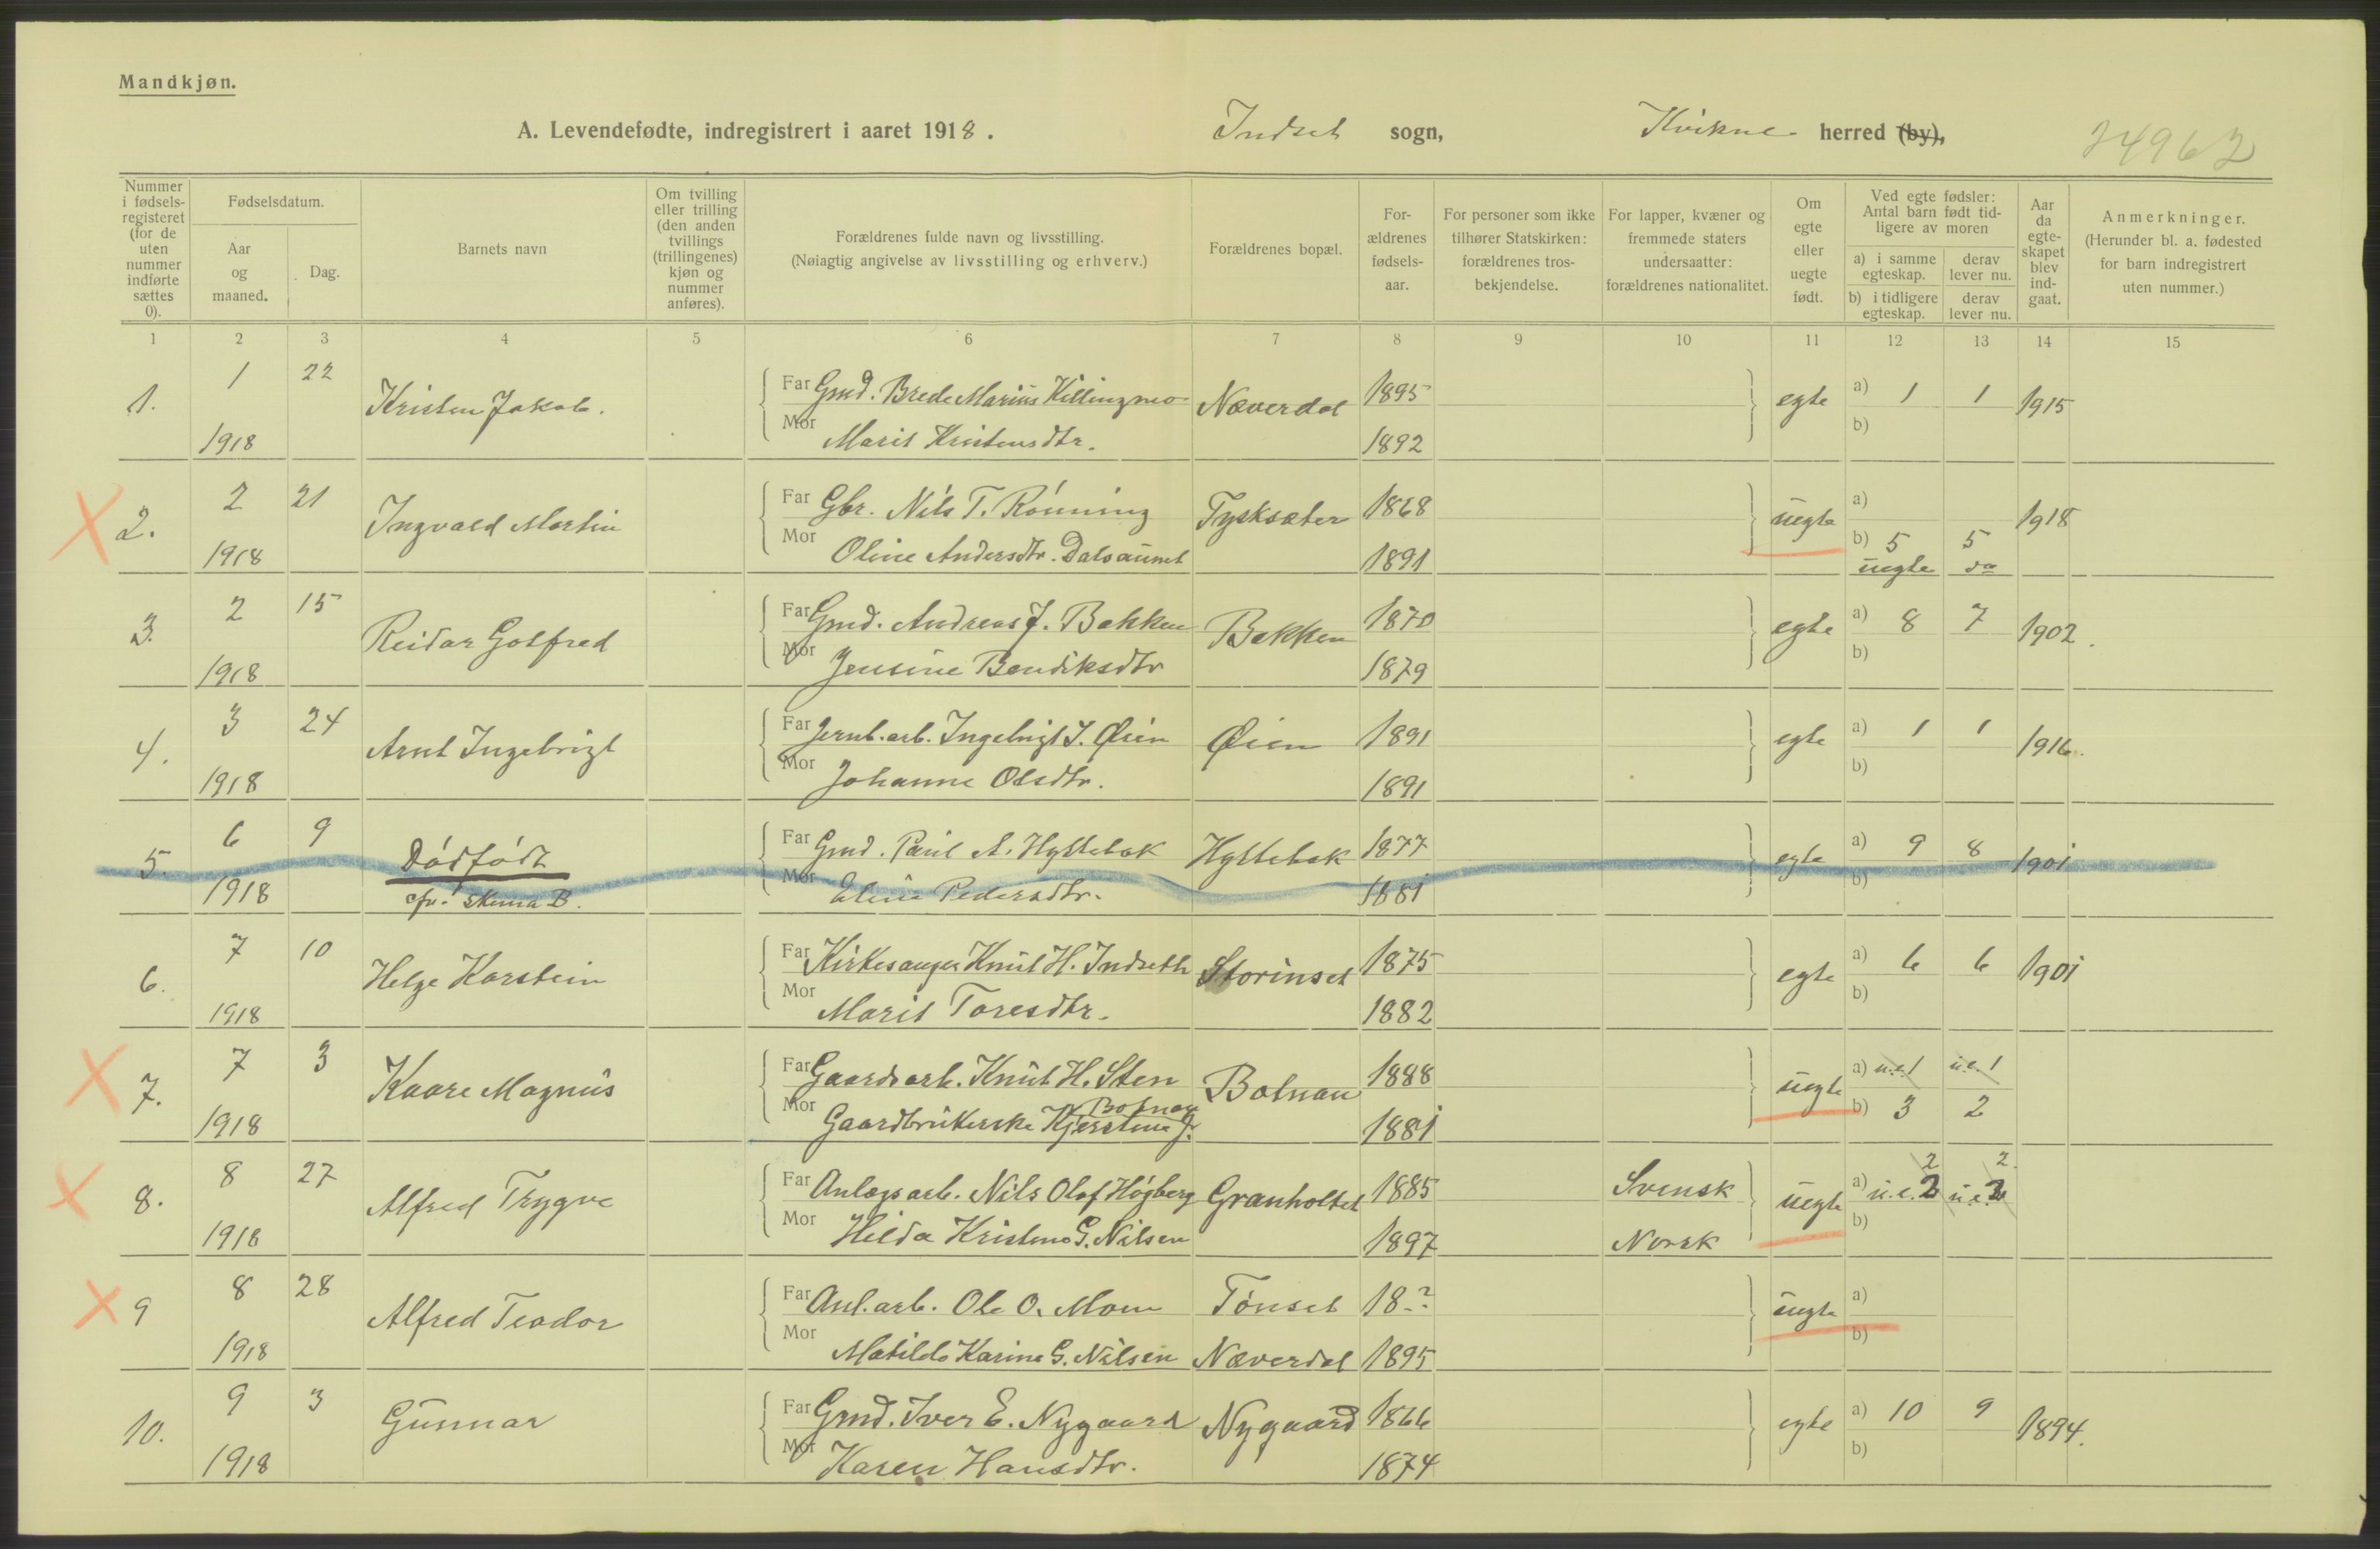 Mandkjøn.
A. Levendefødte, indregistrert i aaret 1918. Indset sogn, Kvikne herred (by), 24962
Nummer i fødselsregisteret (for de uten nummer indførte sættes 0).
Fødselsdatum.
Aar og maaned.
Dag.
Barnets navn
Om tvilling eller trilling (den anden tvillings (trillingenes) kjøn og nummer anføres).
Forældrenes fulde navn og livsstilling.
(Nøiagtig angivelse av livsstilling og erhverv.)
Forældrenes bopæl.
Forældrenes fødselsaar.
For personer som ikke tilhører Statskirken: forældrenes trosbekjendelse.
For lapper, kvæner og fremmede staters undersaatter: forældrenes nationalitet.
Om egte eller uegte født.
Ved egte fødsler: Antal barn født tidligere av moren
a) i samme egteskap. derav lever nu.
b) i tidligere egteskap. derav lever nu.
Aar da egteskapet blev indgaat.
Anmerkninger.
(Herunder bl. a. fødested for barn indregistrert uten nummer.)
1 2 3 4 5 6 7 8 9 10 11 12 13 14 15
1. 1 22 Kristen Jakob. Far Grnd. Brede Marius Killingmo Næverdal 1895 egte a) 1 1 1915
1918 Mor Marit Kristensdtr. 1892 b)
2. 2 21 Ingvald Martin Far Gbr. Nils T. Rönning Tysksæter 1868 uegte a) 1918
1918 Mor Oline Andersdtr. Dalsaunet 1891 b) 5 5
uegte do
3. 2 15 Reidar Gotfred Far Grnd. Andreas J. Bakken Bakken 1870 egte a) 8 7 1902.
1918 Mor Jensine Bendiksdtr 1879 b)
4. 3 24 Arnt Ingebrigt Far Jernb.arb. Ingebrigt I. Øien Øien 1891 egte a) 1 1 1916.
1918 Mor Johanne Olsdtr. 1891 b)
5. 6 9 Dödfödt Far Grnd. Paul A. Hyttebak Hyttebak 1877 egte a) 9 8 1901
1918 cfr. skema B. Mor Eline Pedersdtr. 1881 b)
6. 7 10 Helge Karstein Far Kirkesanger Knut H. Indseth Storinset 1875 egte a) 6 6 1901
1918 Mor Marit Toresdtr. 1882 b)
7. 7 3 Kaare Magnus Far Gaardsarb. Knut H. Sten Botnan 1888 uegte a) u.e. 1 u.e. 1
1918 Mor Gaardbrukerske Kjerstine J. Botnan 1881 b) 3 2
8. 8 27 Alfred Trygve Far Anlægsarb. Nils Olof Högberg Granholtet 1885 Svensk uegte a) u.e. 2 2 u.e. 2 2.
1918 Mor Hilda Kristine G. Nilsen 1897 Norsk b)
9 8 28 Alfred Teodor Far Anl.arb. Ole O. Moen Tönset 18-? uegte a)
1918 Mor Matilde Karine G. Nilsen Næverdal 1895 b)
10. 9 3 Gunnar Far Grnd. Iver E. Nygaard Nygaard 1866 egte a) 10 9 1894.
1918 Mor Karen Hansdtr. 1874 b)